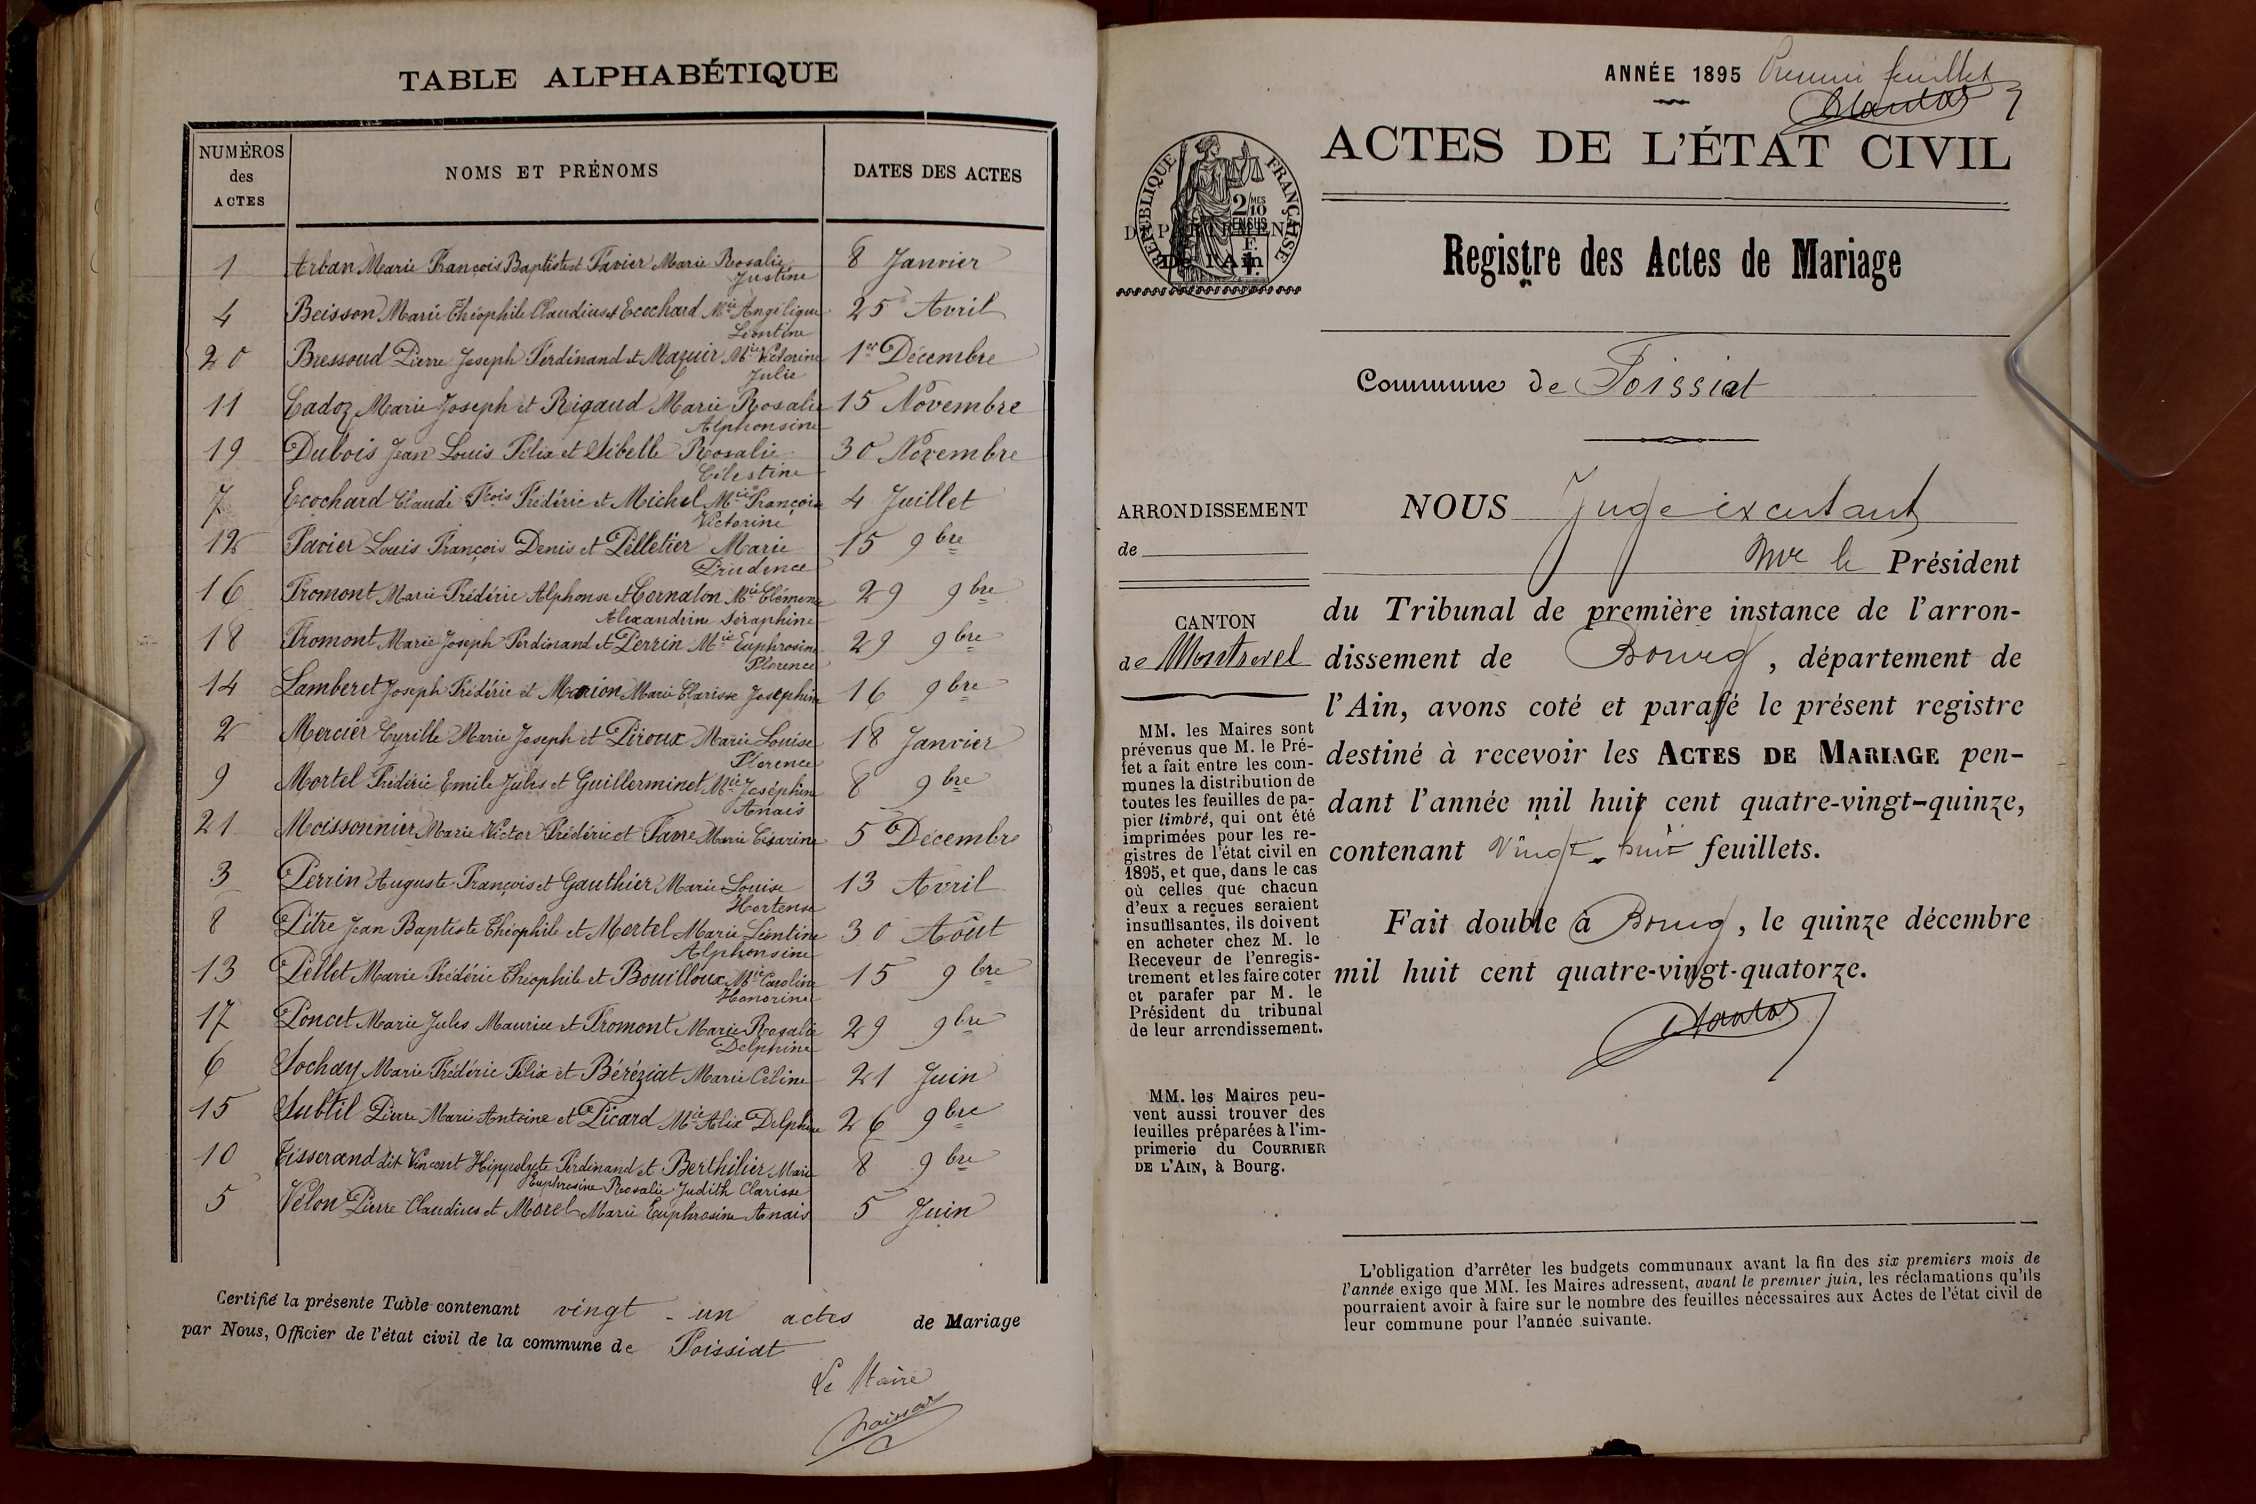 TABLE ALPHABÉTIQUE
NUMÉROS
des
ACTES
NOMS ET PRÉNOMS
DATES DES ACTES
1 Arban Marie François Baptiste et Favier Marie Rosalie 8 Janvier
Justine
4 Beisson Marie Théophile Claudius et Ecochard Mie Angélique 25 Avril
Léontine
20 Bressoud Pierre Joseph Ferdinand et Mazuir Mie Victorine 1er Décembre
Julie
11 Cadoz Marie Joseph et Rigaud Marie Rosalie 15 Novembre
Alphonsine
19 Dubois Jean Louis Félix et Sibelle Rosalie 30 Novembre
Célestine
7 Ecochard Claude Fçois Frédéric et Michel Mie Françoise 4 Juillet
Victorine
12 Favier Louis François Denis et Pelletier Marie 15 9bre
Prudence
16 Fromont Marie Frédéric Alphonse et Cornaton Mie Clémence 29 9bre
Alexandrine Séraphine
18 Fromont Marie Joseph Ferdinand et Perrin Mie Euphrosine 29 9bre
Florence
14 Lamberet Joseph Frédéric et Marion Marie Clarisse Joséphine 16 9bre
2 Mercier Cyrille Marie Joseph et Piroux Marie Louise 18 Janvier
Florence
9 Mortel Frédéric Emile Jules et Guillerminet Mie Joséphine 8 9bre
Anais
21 Moissonnier Marie Victor Frédéric et Favre Marie Césarine 5 Décembre
3 Perrin Auguste François et Gauthier Marie Louise 13 Avril
Hortense
8 Pitre Jean Baptiste Théophile et Mortel Marie Léontine 30 Août
Alphonsine
13 Pellet Marie Frédéric Théophile et Bouilloux Mie Caroline 15 9bre
Honorine
17 Poncet Marie Jules Maurice et Fromont Marie Rosalie 29 9bre
Delphine
6 Sochay Marie Frédéric Félix et Béréziat Marie Céline 21 Juin
15 Subtil Pierre Marie Antoine et Picard Mie Alix Delphine 26 9bre
10 Tisserand dit Vincent Hippolyte Ferdinand et Berthilier Marie 8 9bre
Euphrosine Rosalie Judith Clarisse
5 Vélon Pierre Claudius et Morel Marie Euphrosine Anais 5 Juin
Certifié la présente Table contenant vingt-un actes de Mariage
par Nous, Officier de l'état civil de la commune de Foissiat
Le Maire
ANNÉE 1895 Premier feuillet
ACTES DE L'ÉTAT CIVIL
RÉPUBLIQUE FRANÇAISE
2/10 MES
EN SUS
DÉPARTEMENT
De l'Ain
Registre des Actes de Mariage
Commune de Foissiat
ARRONDISSEMENT
de
CANTON
de Montrevel
MM. les Maires sont
prévenus que M. le Pré-
fet a fait entre les com-
munes la distribution de
toutes les feuilles de pa-
pier timbré, qui ont été
imprimées pour les re-
gistres de l'état civil en
1895, et que, dans le cas
où celles que chacun
d'eux a reçues seraient
insuffisantes, ils doivent
en acheter chez M. le
Receveur de l'enregis-
trement et les faire coter
et parafer par M. le
Président du tribunal
de leur arrondissement.
MM. les Maires peu-
vent aussi trouver des
feuilles préparées à l'im-
primerie du COURRIER
DE L'AIN, à Bourg.
NOUS Juge
Mr le Président
du Tribunal de première instance de l'arron-
dissement de Bourg, département de
l'Ain, avons coté et parafé le présent registre
destiné à recevoir les ACTES DE MARIAGE pen-
dant l'année mil huit cent quatre-vingt-quinze,
contenant Vingt-huit feuillets.
Fait double à Bourg, le quinze décembre
mil huit cent quatre-vingt-quatorze.
L'obligation d'arrêter les budgets communaux avant la fin des six premiers mois de
l'année exige que MM. les Maires adressent, avant le premier juin, les réclamations qu'ils
pourraient avoir à faire sur le nombre des feuilles nécessaires aux Actes de l'état civil de
leur commune pour l'année suivante.